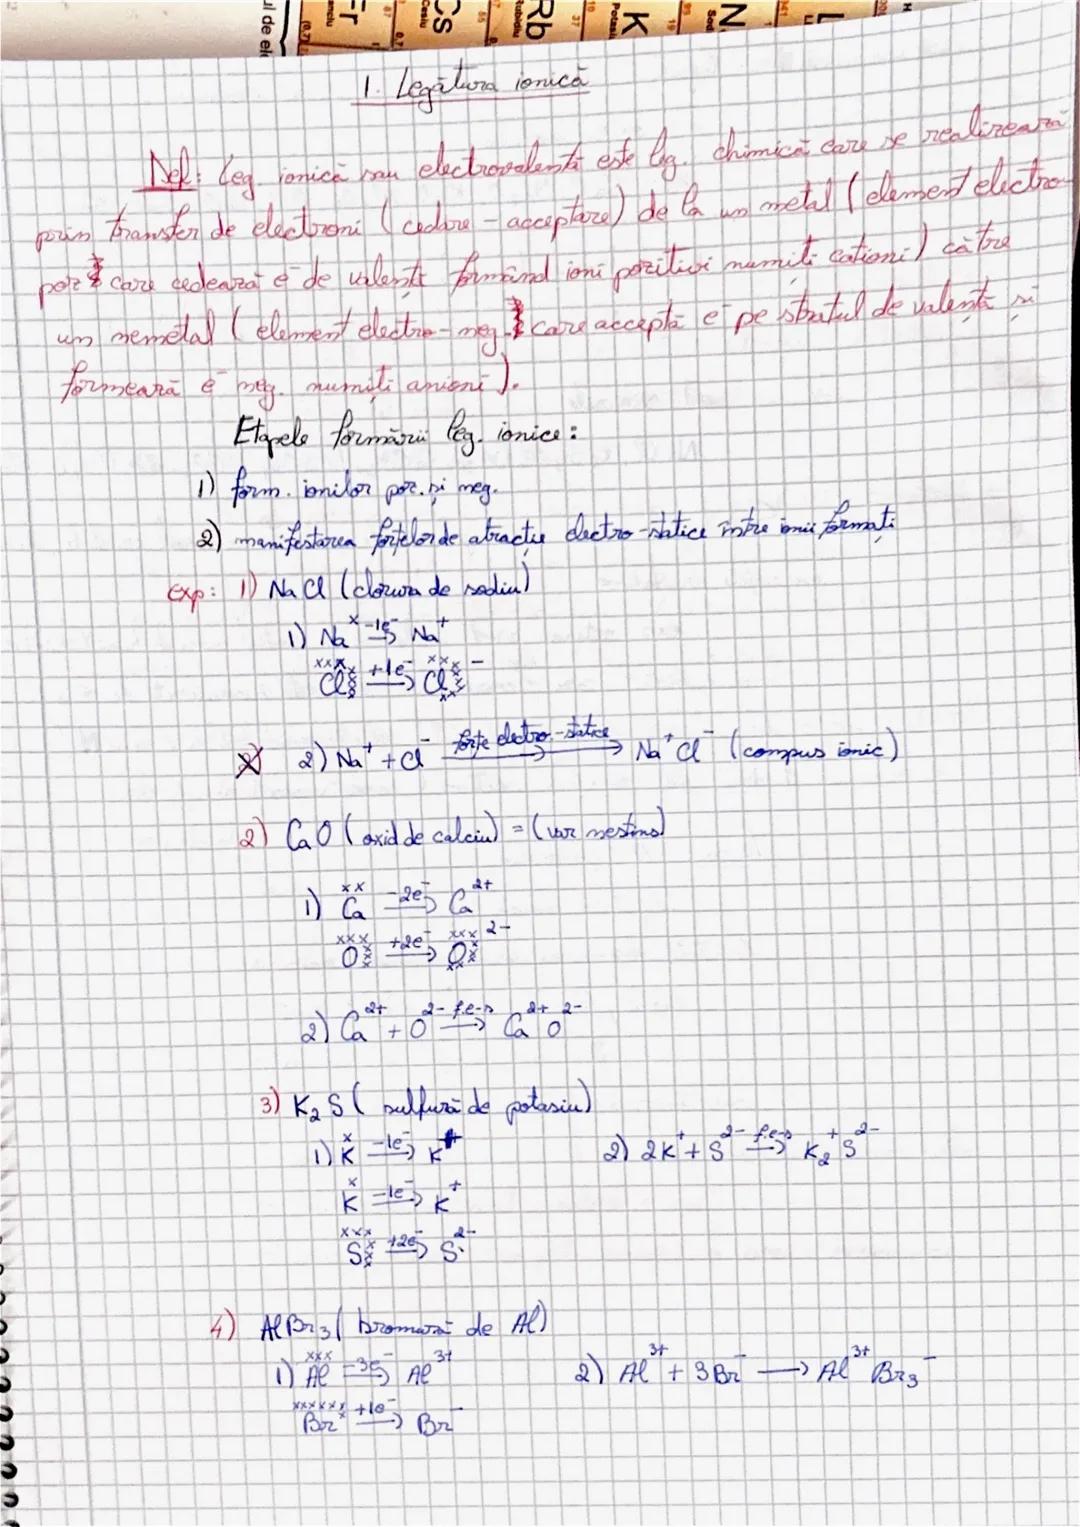 H
L
N
Sod
K
Potasi
19
Rb
Rubidiu
37
Cs
Cesiu
Fr
ul de ele
1. Legătura ionică
Def: Leg ionică sau electrovalentă este leg. chimică care se realizează
prin transfer de electroni (cedare - acceptare) de la un metal (element electro-
poz care cedează e⁻ de valență formând ioni pozitivi numiți cationi) către
un nemetal (element electro-neg. care acceptă e⁻ pe stratul de valență și
formează e⁻ neg. numiți anioni).
Etapele formării leg. ionice:
1) form. ionilor poz. și neg.
2) manifestarea forțelor de atracție electro-statice între ionii formați
Exp: 1) NaCl (clorura de sodiu)
1) Naˣ -1e⁻→ Na⁺
Cl +1e⁻→ Cl⁻
2) Na⁺ + Cl⁻ forțe electro-statice→ Na⁺Cl⁻ (compus ionic)
2) CaO (oxid de calciu) = (var nestins)
1) Ca -2e⁻→ Ca²⁺
O +2e⁻→ O²⁻
2) Ca²⁺ + O²⁻ f.e-s→ Ca²⁺O²⁻
3) K₂S (sulfură de potasiu)
1) K -1e⁻→ K⁺ 2) 2K⁺ + S²⁻ f.e-s→ K₂⁺S²⁻
K -1e⁻→ K⁺
S +2e⁻→ S²⁻
4) AlBr₃ (bromură de Al)
1) Al -3e⁻→ Al³⁺ 2) Al³⁺ + 3Br⁻ → Al³⁺Br₃⁻
Br +1e⁻→ Br⁻